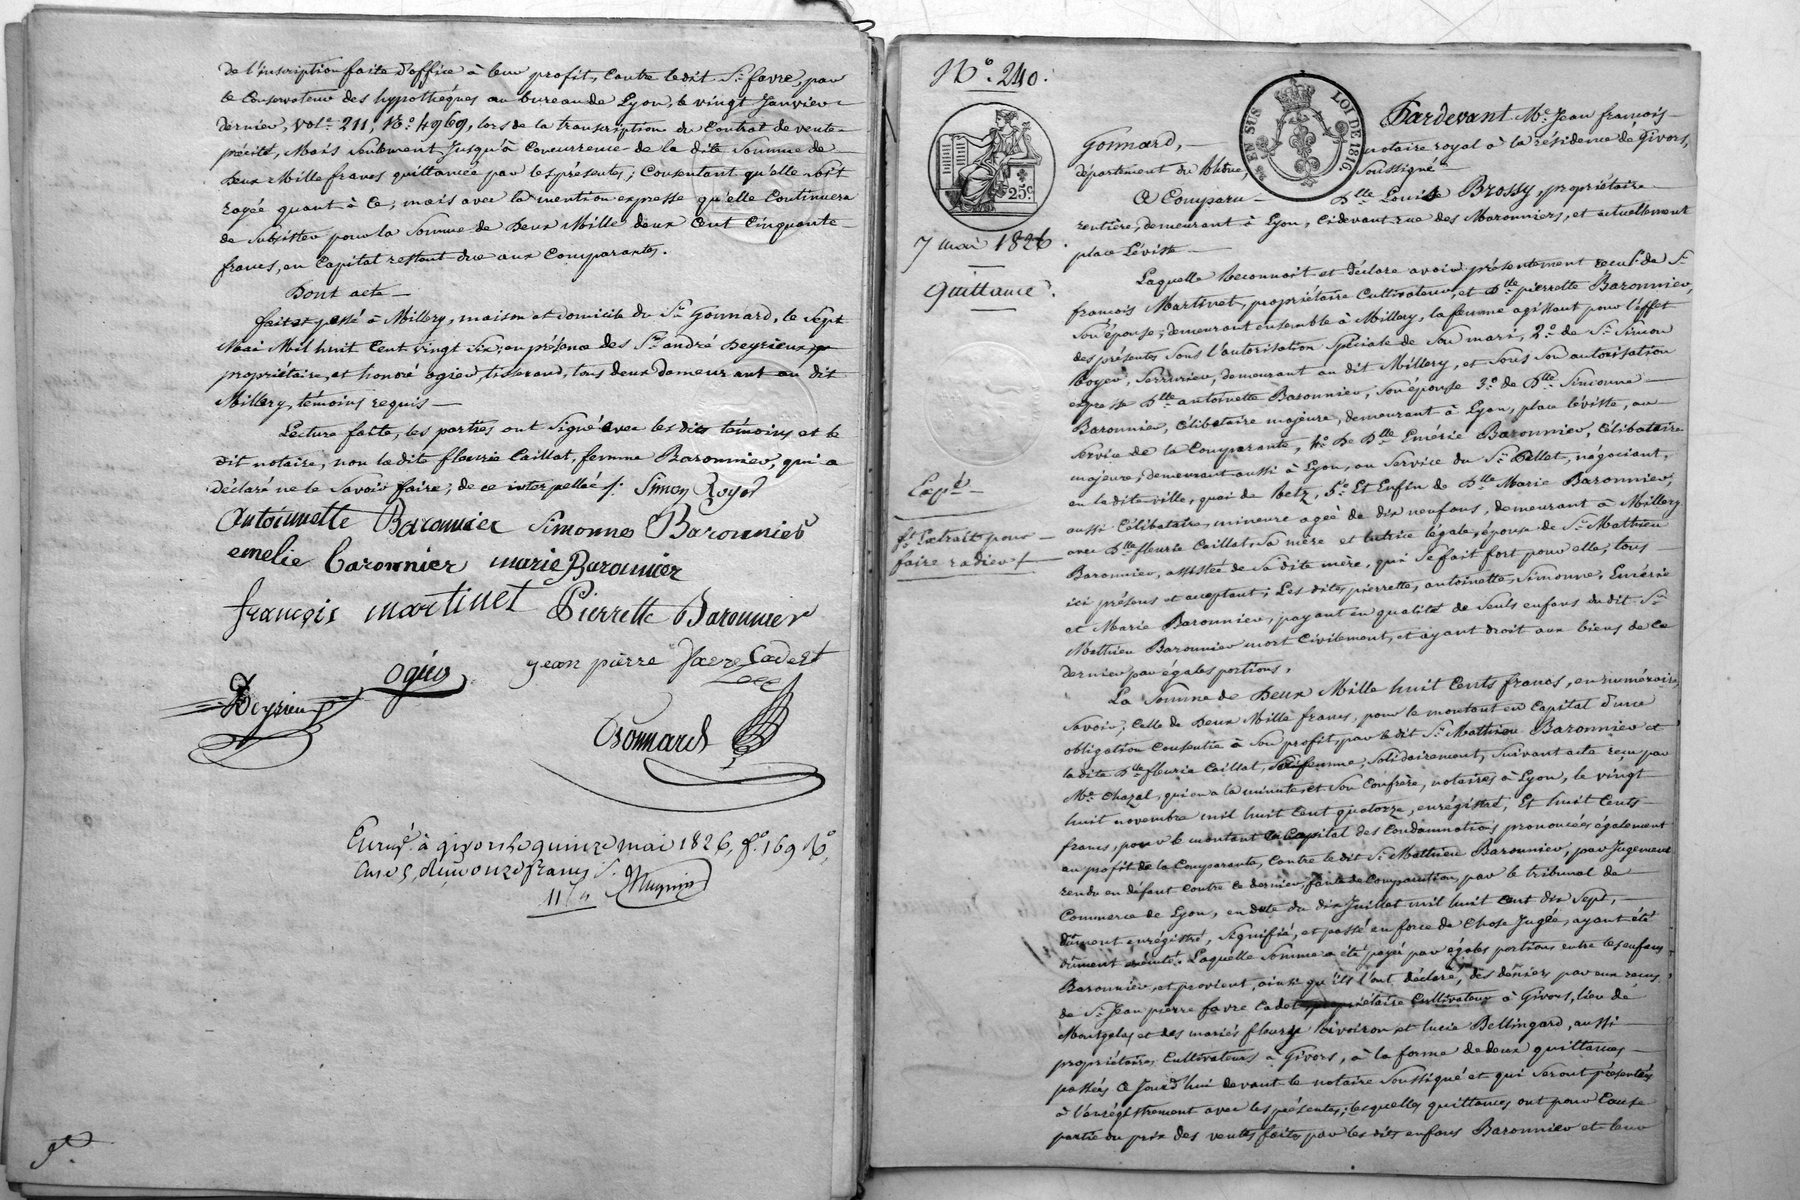 de l'inscription faite d'office à leur profit, contre le dit Sr. favre, par
le Conservateur des hypothèques au bureau de Lyon, le vingt Janvier
dernier, vole. 211, No. 4969, lors de la transcription du Contrat de vente
précité, Mais seulement Jusqu'à Concurrence de la dite Somme de
deux Mille francs quittancée par les présentes; Consentant qu'elle soit
rayée quant à Ce; mais avec la mention expresse qu'elle Continuera
de Subsister pour la Somme de Deux Mille deux Cent Cinquante
francs, en Capital restant due aux Comparantes.
Dont acte
fait et passé à Millery, maison et domicile du Sr. Gonnard, le Sept
Mai Mil huit Cent vingt Six; en présence des Srs. andré Deyrieux
propriétaire, et honoré ogier, tisserand, tous deux demeurant au dit
Millery, témoins requis
Lecture faite, les parties ont Signé avec les dits témoins et le
dit notaire, non la dite fleurie Caillat, femme Baronnier, qui a
déclaré ne le Savoir faire; de ce interpellée /. Simon Royer
Antoinnette Baronnier Simonne Baronnier
emelie baronnier marie Baronnier
françois martinet Pierrette Baronnier
jean pierre Favre Cadet
ogier
Deyrieux
Gonnard
Enregé. à givors le quinze mai 1826, fo. 169 Ro.
Cases, reçu onze francs
11
No. 240.
EN SUS LOI DE 1816
25c.
Pardevant Me. Jean françois
Gonnard, notaire royal à la résidence de Givors,
département du Rhône, Soussigné
A Comparu Dlle. Louise Brossy, propriétaire
rentière, demeurant à Lyon, Cidevant rue des Maronniers, et actuellement
place Léviste
7 mai 1826.
Quittance.
Laquelle Reconnoit et déclare avoir présentement reçu 1o. de Sr.
françois Martinet, propriétaire Cultivateur, et Dlle. pierrette Baronnier,
Son épouse, demeurant ensemble à Millery, la femme agissant pour l'effet
des présentes, Sous l'autorisation Spéciale de Son mari, 2o. de Sr. Simon
Royer, Serrurier, demeurant au dit Millery, et Sous Son autorisation
expresse Dlle. antoinette Baronnier, Son épouse 3o. de Dlle. Simonne
Baronnier, Célibataire majeure, demeurant à Lyon, place léviste, au
Service de la Comparante, 4o. De Dlle. Emérie Baronnier, Célibataire
majeure, demeurant aussi à Lyon, au Service du Sr. Pellet, négociant,
en la dite ville, quai de Retz, 5o. Et Enfin de Dlle. Marie Baronnier,
aussi Célibataire, mineure agée de dix neuf ans, demeurant à Millery
avec Dlle. fleurie Caillat, Sa mère et tutrice légale, épouse de Sr. Mathieu
Baronnier, assistée de Sa dite mère, qui Se fait fort pour elle, tous
ici présens et acceptant; Les dites pierrette, antoinette, Simonne, Emérie
et Marie Baronnier, payant en qualité de Seuls enfans du dit Sr.
Mathieu Baronnier mort Civilement, et ayant droit aux biens de Ce
dernier par égales portions,
Expé.
ft. Extrait pour
faire radier /
La Somme de Deux Mille huit Cents francs, en numéraire,
Savoir; Celle de Deux Mille francs, pour le montant en Capital d'une
obligation Consentie à Son profit, par le dit Sr. Mathieu Baronnier et
la dite Dlle. fleurie Caillat, Sa femme, Solidairement, Suivant acte reçu par
Me. Chazal, qui en a la minute, et Son Confrère, notaires à Lyon, le vingt
huit novembre mil huit Cent quatorze, enrégistré, Et huit Cents
francs, pour le montant en Capital des Condamnations prononcées également
au profit de la Comparante, Contre le dit Sr. Mathieu Baronnier, par Jugement
rendu en défaut Contre Ce dernier, faute de Comparution, par le tribunal de
Commerce de Lyon, en date du dix Juillet mil huit Cent dix Sept,
dûment enrégistré, Signifié, et passé en force de Chose Jugée, ayant été
dûment exécuté. Laquelle Somme a été payée par égales portions entre les enfans
Baronnier, et provient, ainsi qu'ils l'ont déclaré, des deniers par eux reçus
de Sr. Jean pierre favre Cadet propriétaire Cultivateur à Givors, lieu de
Montgelas, et des mariés fleury Rivoiron et lucie Bellingard, aussi
propriétaires, Cultivateurs à Givors, à la forme de deux quittances
passées Ce Jourd'hui devant le notaire Soussigné et qui Seront présentées
à l'enrégistrement avec les présentes; lesquelles quittances ont pour Cause
partie du prix des ventes faites par les dits enfans Baronnier et leur